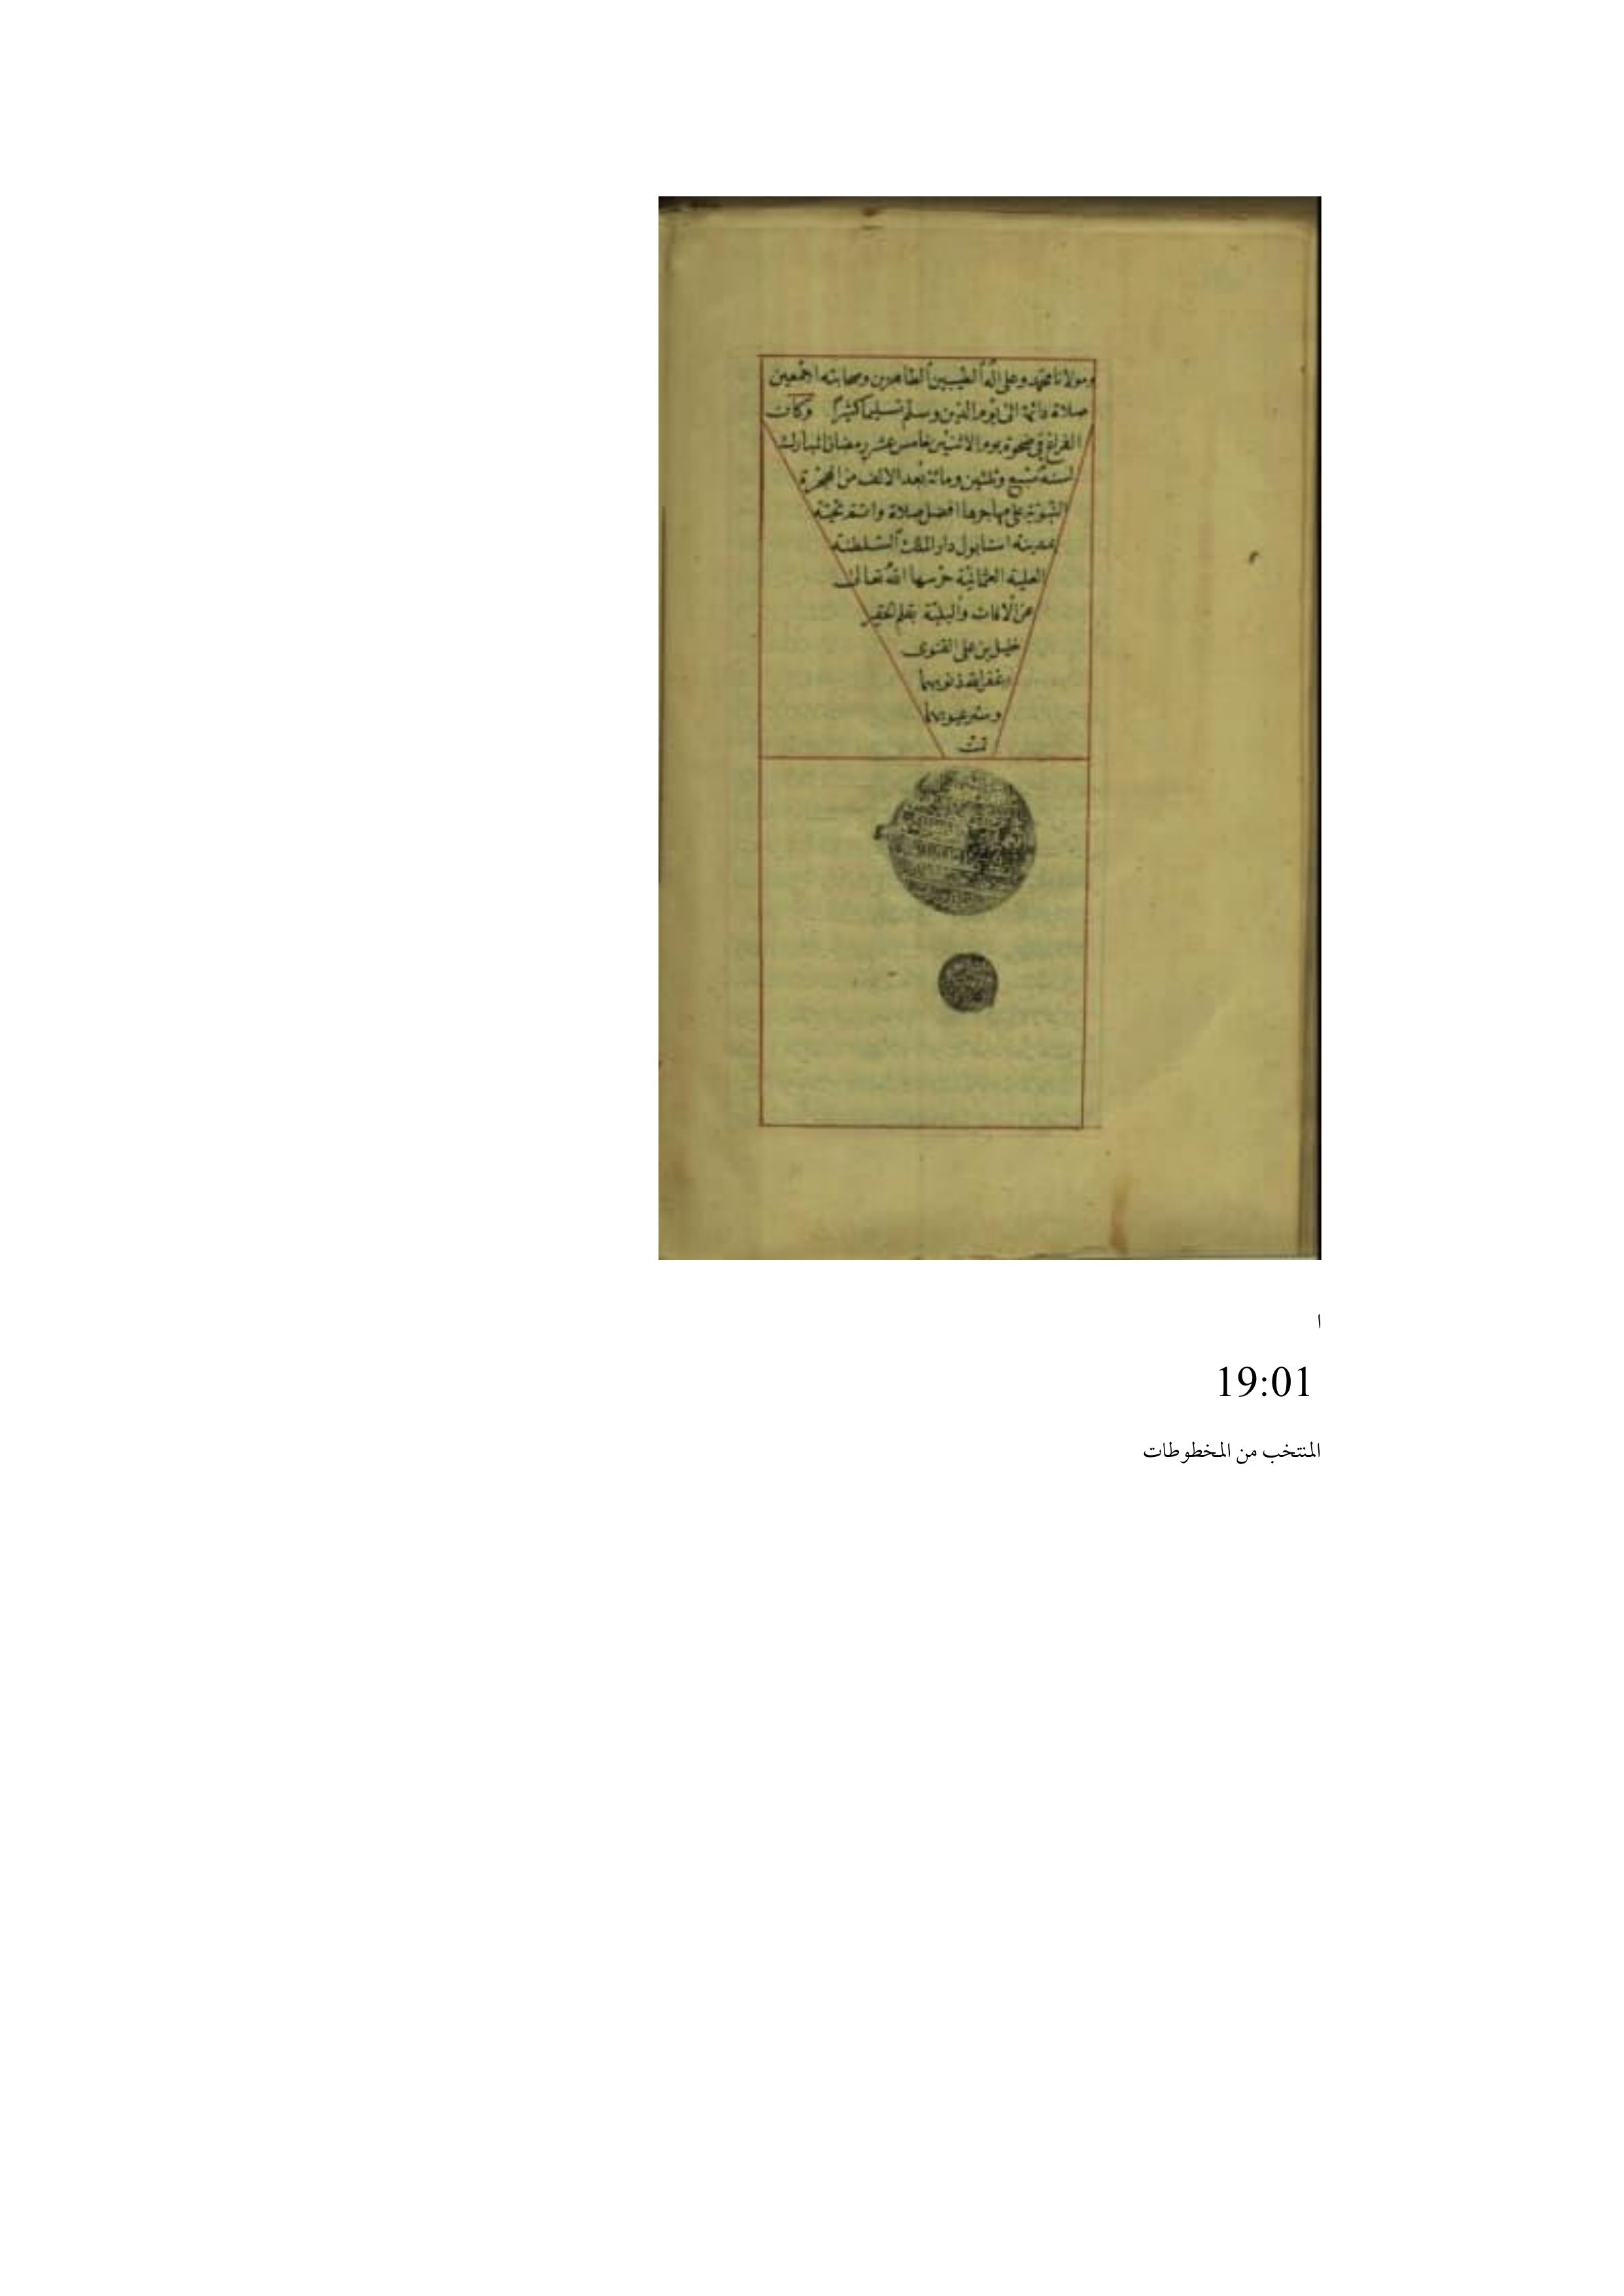 ومولانا محمد وعلى اله الطيبين الطاهرين وصحابته اجمعين
صلاة دائمة الى يوم الدين وسلم تسليما كثيرا وكان
الفراغ في ضحوة يوم الاثنين خامس عشر رمضان المبارك
لسنة سبع وثلثين ومائة بعد الالف من الهجرة
النبوية على مهاجرها افضل صلاة واشرف تحية
بمدينة استابول دار الملك السلطنة
العلية العثمانية حرسها الله تعالى
عن الافات والبلية بقلم الحقير
خليل بن على القنوى
غفر الله ذنوبهما
وستر عيوبهما
تمت
ا
19:01
المنتخب من المخطوطات